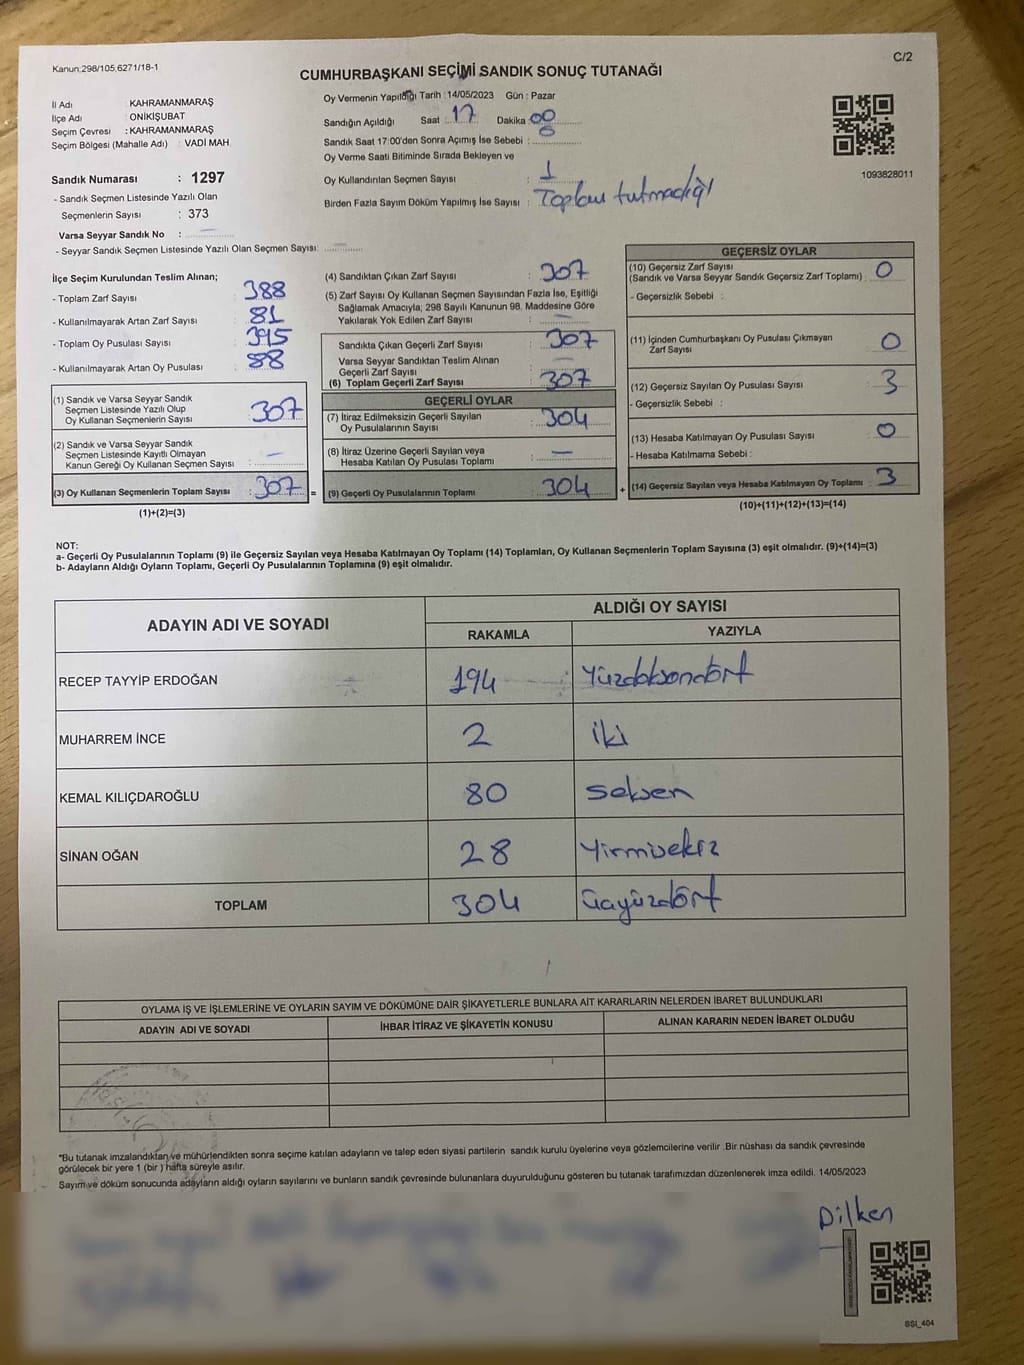 Kanun:298/105,6271/18-1
C/2
CUMHURBAŞKANI SEÇİMİ SANDIK SONUÇ TUTANAĞI
İl Adı : KAHRAMANMARAŞ
İlçe Adı : ONİKİŞUBAT
Seçim Çevresi : KAHRAMANMARAŞ
Seçim Bölgesi (Mahalle Adı) : VADİ MAH.
Oy Vermenin Yapıldığı Tarih : 14/05/2023 Gün : Pazar
Sandığın Açıldığı Saat 17 Dakika 00
Sandık Saat 17:00'den Sonra Açımış İse Sebebi :
Oy Verme Saati Bitiminde Sırada Bekleyen ve
Oy Kullandırılan Seçmen Sayısı : 1
Birden Fazla Sayım Döküm Yapılmış İse Sayısı : Toplam tutmadığı
1093828011
Sandık Numarası : 1297
- Sandık Seçmen Listesinde Yazılı Olan
Seçmenlerin Sayısı : 373
Varsa Seyyar Sandık No : –
- Seyyar Sandık Seçmen Listesinde Yazılı Olan Seçmen Sayısı: –
İlçe Seçim Kurulundan Teslim Alınan;
- Toplam Zarf Sayısı : 388
- Kullanılmayarak Artan Zarf Sayısı : 81
- Toplam Oy Pusulası Sayısı : 395
- Kullanılmayarak Artan Oy Pusulası : 88
(1) Sandık ve Varsa Seyyar Sandık
Seçmen Listesinde Yazılı Olup
Oy Kullanan Seçmenlerin Sayısı : 307
(2) Sandık ve Varsa Seyyar Sandık
Seçmen Listesinde Kayıtlı Olmayan
Kanun Gereği Oy Kullanan Seçmen Sayısı : –
(3) Oy Kullanan Seçmenlerin Toplam Sayısı : 307 =
(1)+(2)=(3)
(4) Sandıktan Çıkan Zarf Sayısı : 307
(5) Zarf Sayısı Oy Kullanan Seçmen Sayısından Fazla İse, Eşitliği
Sağlamak Amacıyla; 298 Sayılı Kanunun 98. Maddesine Göre
Yakılarak Yok Edilen Zarf Sayısı : –
Sandıkta Çıkan Geçerli Zarf Sayısı : 307
Varsa Seyyar Sandıktan Teslim Alınan
Geçerli Zarf Sayısı : –
(6) Toplam Geçerli Zarf Sayısı : 307
GEÇERLİ OYLAR
(7) İtiraz Edilmeksizin Geçerli Sayılan
Oy Pusulalarının Sayısı : 304
(8) İtiraz Üzerine Geçerli Sayılan veya
Hesaba Katılan Oy Pusulası Toplamı : –
(9) Geçerli Oy Pusulalarının Toplamı : 304 +
GEÇERSİZ OYLAR
(10) Geçersiz Zarf Sayısı
(Sandık ve Varsa Seyyar Sandık Geçersiz Zarf Toplamı) : 0
- Geçersizlik Sebebi :
(11) İçinden Cumhurbaşkanı Oy Pusulası Çıkmayan
Zarf Sayısı : 0
(12) Geçersiz Sayılan Oy Pusulası Sayısı : 3
- Geçersizlik Sebebi :
(13) Hesaba Katılmayan Oy Pusulası Sayısı : 0
- Hesaba Katılmama Sebebi :
(14) Geçersiz Sayılan veya Hesaba Katılmayan Oy Toplamı : 3
(10)+(11)+(12)+(13)=(14)
NOT:
a- Geçerli Oy Pusulalarının Toplamı (9) ile Geçersiz Sayılan veya Hesaba Katılmayan Oy Toplamı (14) Toplamları, Oy Kullanan Seçmenlerin Toplam Sayısına (3) eşit olmalıdır. (9)+(14)=(3)
b- Adayların Aldığı Oyların Toplamı, Geçerli Oy Pusulalarının Toplamına (9) eşit olmalıdır.
ADAYIN ADI VE SOYADI
ALDIĞI OY SAYISI
RAKAMLA YAZIYLA
RECEP TAYYİP ERDOĞAN 194 Yüzdoksandört
MUHARREM İNCE 2 iki
KEMAL KILIÇDAROĞLU 80 Seksen
SİNAN OĞAN 28 Yirmisekiz
TOPLAM 304 Üçyüzdört
OYLAMA İŞ VE İŞLEMLERİNE VE OYLARIN SAYIM VE DÖKÜMÜNE DAİR ŞİKAYETLERLE BUNLARA AİT KARARLARIN NELERDEN İBARET BULUNDUKLARI
ADAYIN ADI VE SOYADI İHBAR İTİRAZ VE ŞİKAYETİN KONUSU ALINAN KARARIN NEDEN İBARET OLDUĞU
*Bu tutanak imzalandıktan ve mühürlendikten sonra seçime katılan adayların ve talep eden siyasi partilerin sandık kurulu üyelerine veya gözlemcilerine verilir .Bir nüshası da sandık çevresinde
görülecek bir yere 1 (bir ) hafta süreyle asılır.
Sayım ve döküm sonucunda adayların aldığı oyların sayılarını ve bunların sandık çevresinde bulunanlara duyurulduğunu gösteren bu tutanak tarafımızdan düzenlenerek imza edildi. 14/05/2023
Dilken
SSI_404